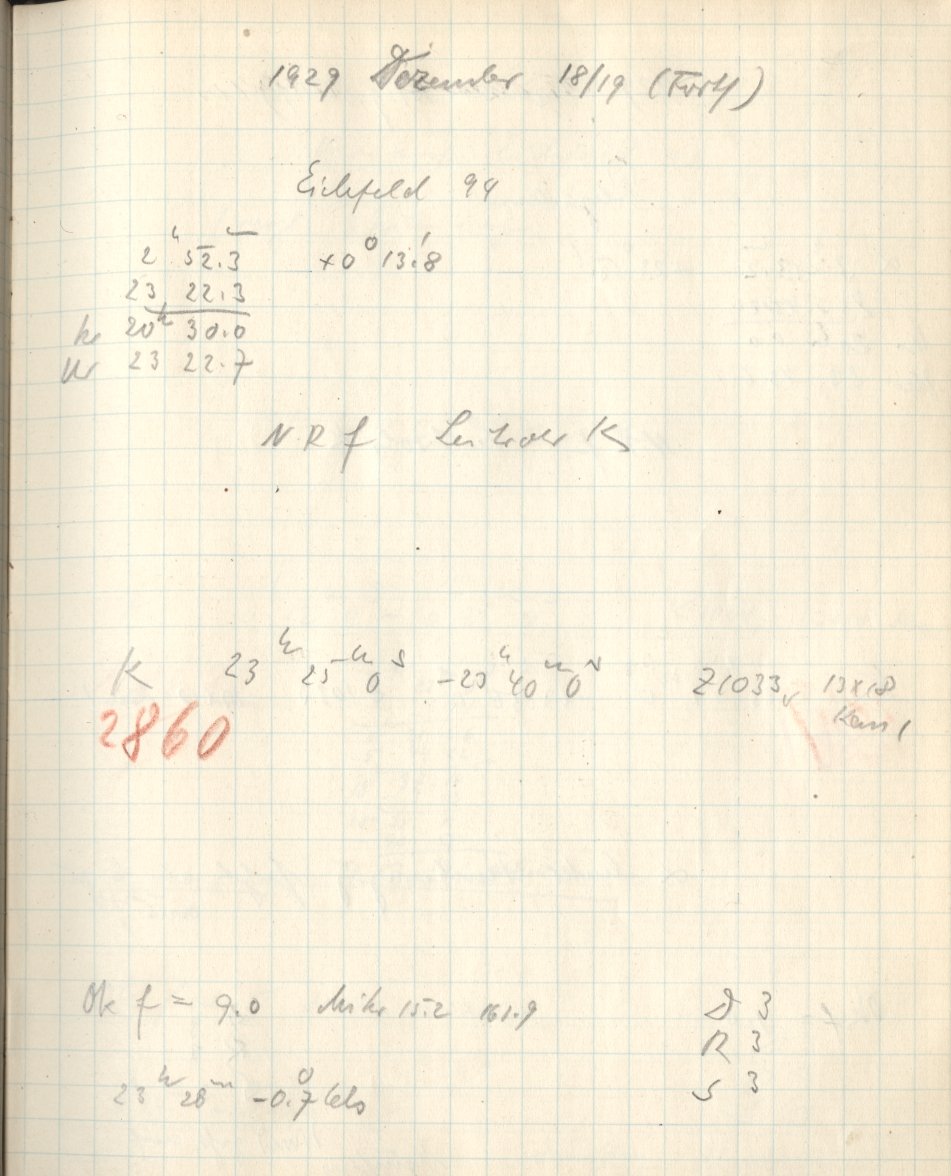 1929 Dezember 18/19 (Forts)
Eichfeld 94
2h 52.m3 +0° 13.'8
23 22.3
20h 30.0
Ur 23 22.7
N R f
K 23h 25m 0s -23h 40m 0s Z1033, 13x18
2860
Ok f = 9.0 Mikr 15.2 161.9 D 3
R 3
23h 28m -0.°7 Cels S 3